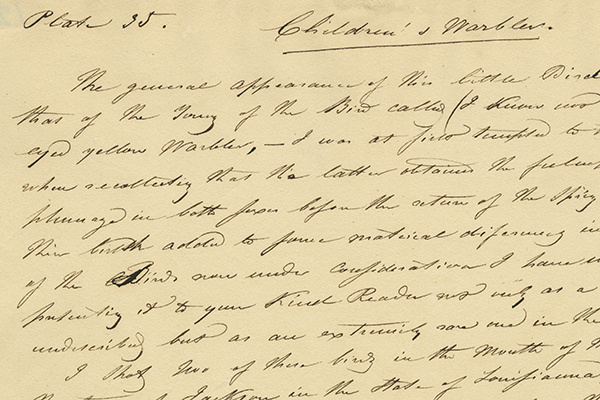 Plate 35. Children's Warbler.
The general appearance of this little Bird
that of the Young of the Bird called (I Know not
eyed yellow Warbler, — I was at first tempted to
when recollecting that the latter obtains the full
plumage in both sexes before the return of the Spring
their birth added to some material differency in
of the Birds now under consideration I have
presenting it to you Kind Reader not only as a
undescribed but as an extremely rare one in the
I shot Two of these birds in the Month of
Jackson in the State of Louisianna